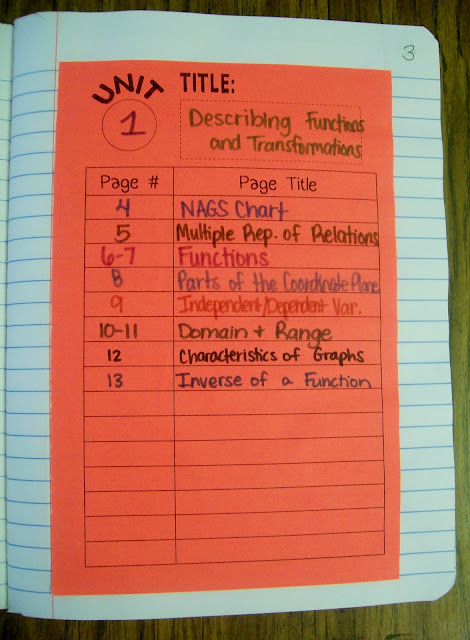 3
UNIT TITLE:
1 Describing Functions
and Transformations
Page # Page Title
4 NAGS Chart
5 Multiple Rep. of Relations
6-7 Functions
8 Parts of the Coordinate Plane
9 Independent/Dependent Var.
10-11 Domain + Range
12 Characteristics of Graphs
13 Inverse of a Function